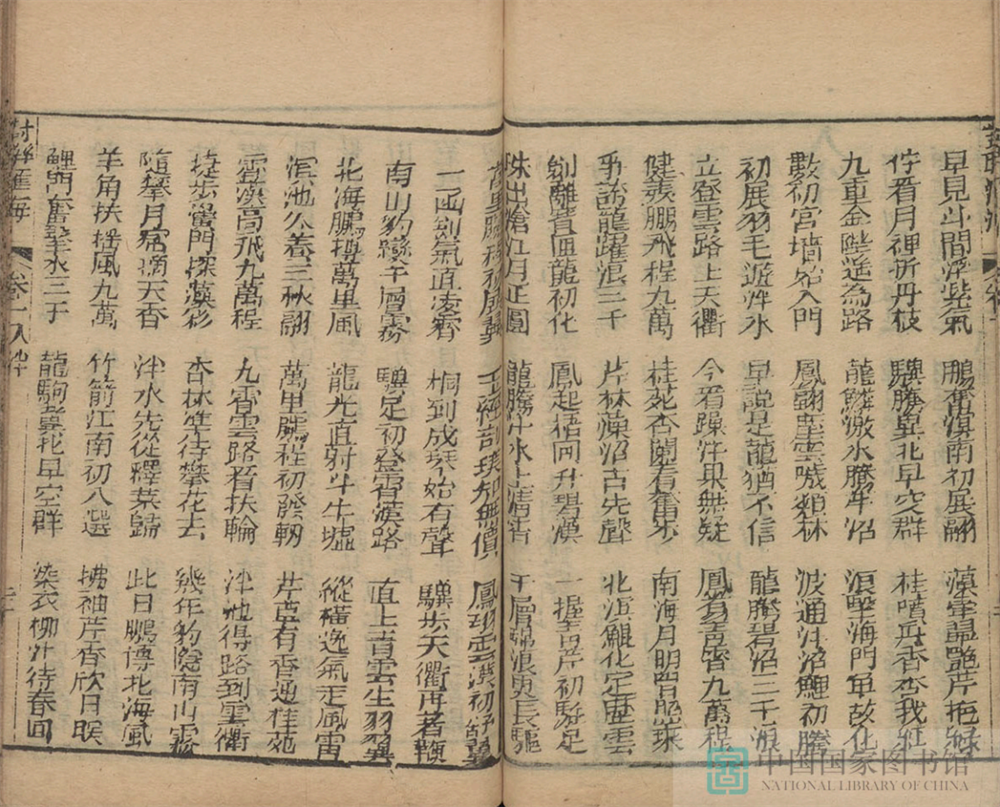 早見斗間浮紫氣 鵬奮滇南初展翮 藻電韞艷芹袍綠
佇看月裡折丹枝 驥騰冀北早空群 桂噴丹香杏我紅
九重金闕遙為路 龍鱗激水騰半沼 滇墅海門早故化
數初宮墻始入門 鳳翮垂雲噦類林 波通泮沼鯉初騰
初展羽毛遊泮水 早說是龍猶不信 龍騰碧沼三千浪
立登雲路上天衢 今看躁泮果無疑 鳳翥青霄九萬程
健羨鵬飛程九萬 桂苑香聞看奮步 南海月明四照珠
爭誇龍躍浪三千 芹林藻沼古先聲 北滇鯤化定歷雲
劍離豊匣龍初化 鳳起梧岡升碧漢 一握青芹初駐足
珠出滄江月正圓 龍騰泮水上清霄 千層錦浪更長驅
萬里鵬程初展翼 玉經剖璞知無價 鳳翔雲漢初舒翼
一函劍氣直凌霄 桐到成琴始有聲 驥步天衢再著鞭
南山豹變千層霧 驥足初登霄漢路 直上青雲生羽翼
北海鵬摶萬里風 龍光直射斗牛墟 縱橫逸氣走風雷
滇池久養三秋翮 萬里鵬程初發軔 芹莒有香通桂苑
霄漢高飛九萬程 九霄雲路看扶輪 泮池得路到雲衢
捷步黌門探藻彩 杏林竚待攀花去 幾年豹隱南山霧
隨攀月窟摘天香 泮水先從釋菜歸 此日鵬傳北海風
羊角扶搖風九萬 竹箭江南初入選 拂袖芹香欣日暖
鯉門奮擊水三千 龍駒冀北早空群 染衣柳汁待春回
對聯匯海 卷一 入泮